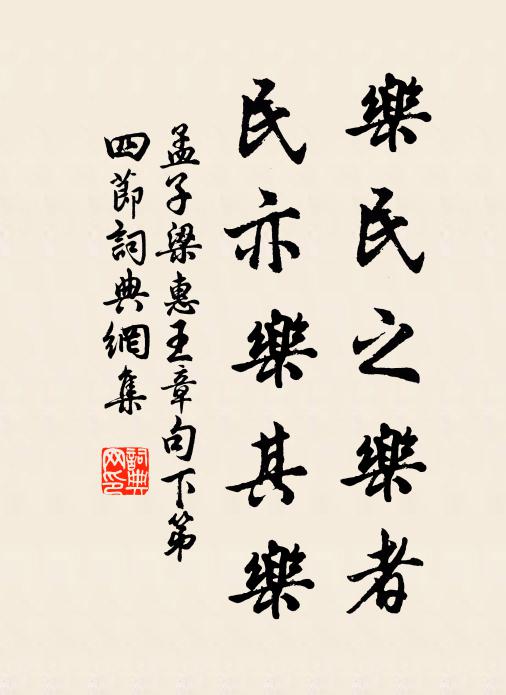 樂民之樂者
民亦樂其樂
孟子梁惠王章句下第
四節詞典網集
詞典
网印